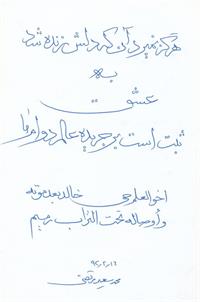 هرگز نمیرد آن که دلش زنده شد
به
عشق
ثبت است بر جریده عالم دوام ما
اخو العلم حی خالد بعد موته
و أوصاله تحت التراب رمیم
۹۲،۲،۱۶
محمد سعید